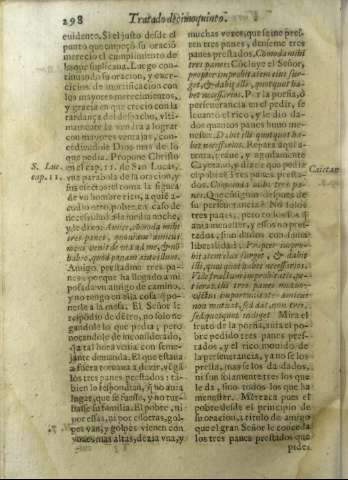 298 Tratado decimoquinto.
euidente. Si el justo desde el
punto que empeçò su oraciõ
mereciò el cumplimiento de
lo que suplicaua. Luego con-
tinuando su oracion, y exer-
cicios de mortificacion con
los mayores merecimientos,
y gracia en que crecio con la
tardança del despacho, vlti-
mamente le vendra a lograr
con mayores ventajas, con-
cediendole Dios mas de lo
que pedia. Propone Christo
S. Luc. cap. 11.
en el cap. 11. de San Lucas,
vna parabola de la oracion,
un hombre rico, a quiẽ a-
cudio otro pobre, en caso de
necessidad a la media noche,
y le dixo: Amice, cõmoda mihi
tres panes, quoniam amicus
meus venit de via ad me, & nõ
habeo, quod ponam ante illum.
Amigo, prestadme tres pa-
nes, porque ha llegado a mi
posada vn amigo de camino,
y no tengo en ella cosa q̃ po-
nerle a la mesa. El Señor le
respõdio de dẽtro, no solo ne-
gandole lo que pedia, pero
notandole de inconsiderado,
q̃ a tal hora venia con seme-
jante demanda. El que estaua
a fuera tornaua a dezir, vẽga
los tres panes prestados: tã-
bien le respondian, q̃ no auia
lugar, que se fuesse, y no tur-
basse su familia. El pobre, ni
por essas, ni por essotras, gol-
pes van, y golpes vienen con
vozes mas altas, dezia vna, y
muchas vezes, que se me pres-
ten tres panes, denseme tres
panes prestados. Cõmoda mihi
tres panes: Cõcluye el Señor,
propter improbitatem eius sur-
get, & dabit illi, quot quot ha-
bet necessarios. Por la porfia, ò
perseuerancia en el pedir, se
leuantò el rico, y le dio da-
dos quantos panes huuo me-
nester. Dabit illi quotquot ha-
bet necessarios. Repara aqui a-
Caietan
tento, y agudamente
Cayetano, y dize: que pedia
el pobre? Tres panes presta-
dos. Commoda mihi tres pa-
nes. Que cõsiguio despues de
su perseuerancia? No solos
tres panes, pero todos los q̃
auia menester, y essos no pres-
tados, sino dados con suma
liberalidad. Propter impro-
bitatem eius surget, & dabit
illi, quot quot habet necessarios.
non mutuat, sed dat, non tres,
sed quotquot indiget. Mira el
fruto de la porfia, auia el po-
bre pedido tres panes pres-
tados, y el rico mouido de
la perseuerancia, ya no se los
presta, mas se los da dados,
ni tan solamente tres los que
le da, sino todos los que ha
menester. Merezca pues el
pobre desde el principio de
su oracion, a titulo de amigo
que el gran Señor le conceda
los tres panes prestados que
pides